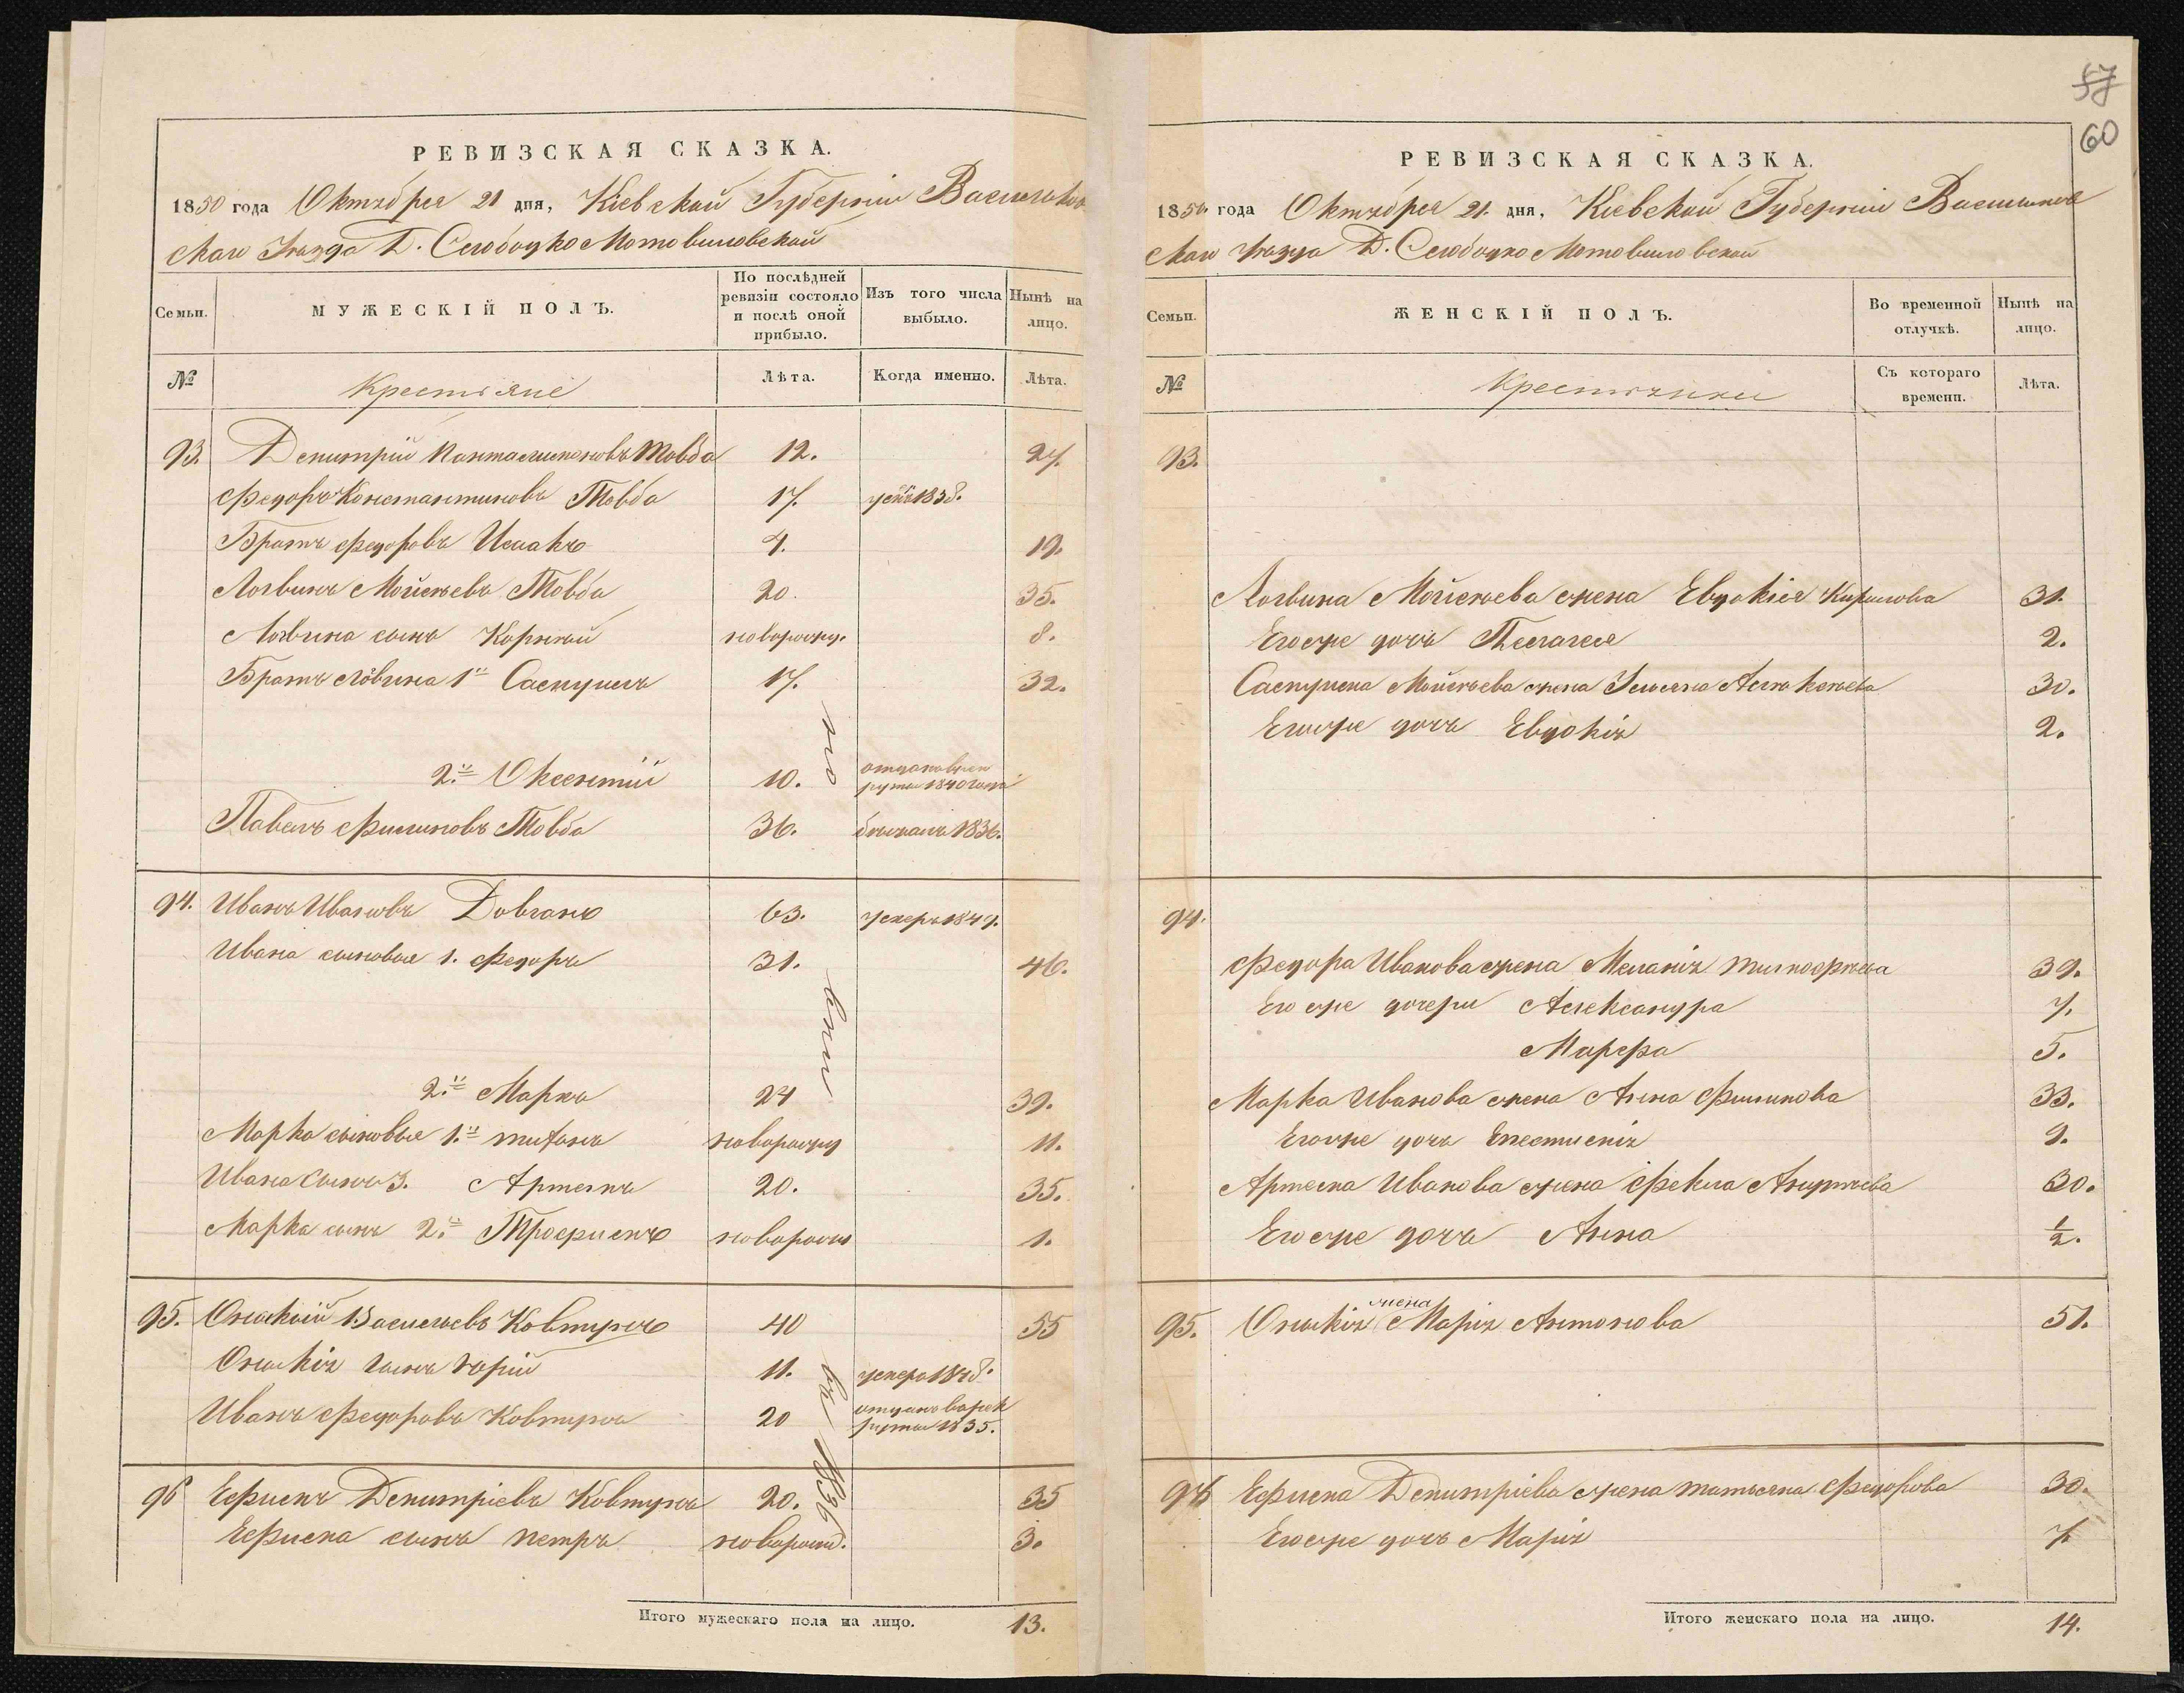 РЕВИЗСКАЯ СКАЗКА.
1850 года Октября 21 дня, Кіевской Губерніи Васильков
скаго Уѣзда Д. Слободко Мотовиловской
Семьи.
МУЖЕСКІЙ ПОЛЪ.
По послѣдней ревизіи состояло и послѣ оной прибыло.
Изъ того числа выбыло.
Нынѣ на лицо.
№
Крестьяне
Лѣта.
Когда именно.
Лѣта.
93. Демитрій Пантелимоновъ Товба 12. 27.
Федоръ Константиновъ Товба 17. 1838.
Братъ Федоровъ Исаакъ 4. 19.
Логвинъ Мойсѣевъ Товба 20. 35.
Логвина сынъ Корнѣй новорожд. 8.
Братъ Логвина 1й 17. 32.
2й Оксентій 10. отданъ въ рекруты 1840 года
Павелъ Филиповъ Товба 36. бѣжалъ 1836.
94. Иванъ Ивановъ Довгань 63. умеръ 1849.
Ивана сыновья 1. Федоръ 31. 46.
2й Марко 24 39.
Марка сыновья 1й новорожд 11.
Ивана сынъ 3. Артемъ 20. 35.
Марка сынъ 2й Трофимъ новорож 1.
95. Васильевъ Ковтунъ 40 55
сынъ Юрій 11. умеръ 1848.
Иванъ Федоровъ Ковтунъ 20 отданъ въ рекруты 1835.
96 Ефимъ Демитріевъ Ковтунъ 20. 35
Ефима сынъ Петръ новорожд. 3.
по
въ 1836
Итого мужескаго пола на лицо. 13.
57
60
РЕВИЗСКАЯ СКАЗКА.
1850 года Октября 21. дня, Кіевской Губерніи Васильков
скаго Уѣзда Д. Слободко Мотовиловской
Семьи.
ЖЕНСКІЙ ПОЛЪ.
Во временной отлучкѣ.
Нынѣ на лицо.
№
Крестьянки
Съ котораго времени.
Лѣта.
93.
Логвина Мойсѣева жена Евдокія Кирилова 31.
Егоже дочь Пелагея 2.
Мойсѣева жена 30.
Егоже дочь Евдокія 2.
94.
Федора Иванова жена Меланія Тимофѣева 39.
Его же дочери Александра 7.
Марфа 5.
Марка Иванова жена Анна Филипова 33.
Егоже дочь 9.
Артема Иванова жена Фекла Андрѣева 30.
Егоже дочь Анна 1/2.
95. жена Марія Антонова 51.
96 Ефима Демитріева жена Татьяна Федорова 30.
Егоже дочь Марія 7.
Итого женскаго пола на лицо. 14.